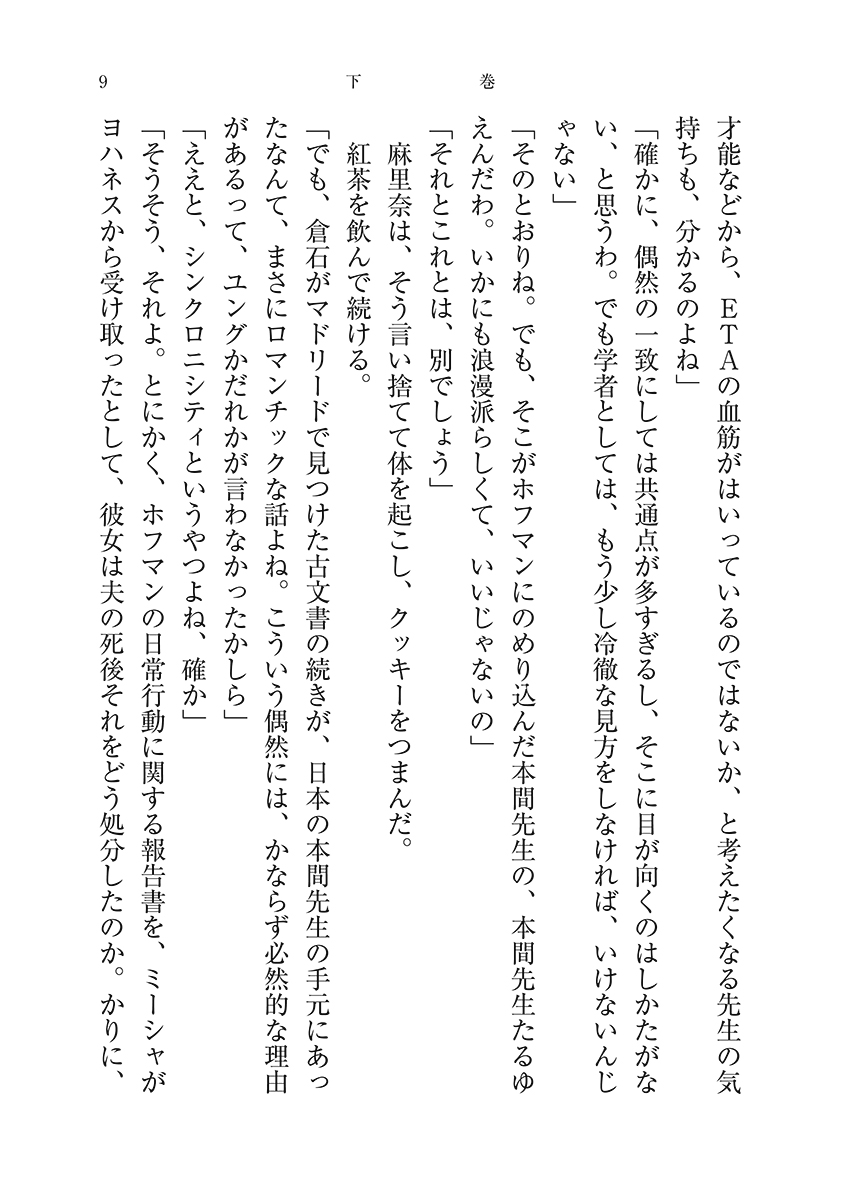 下巻
9
才能などから、ETAの血筋がはいっているのではないか、と考えたくなる先生の気
持ちも、分かるのよね」
「確かに、偶然の一致にしては共通点が多すぎるし、そこに目が向くのはしかたがな
い、と思うわ。でも学者としては、もう少し冷徹な見方をしなければ、いけないんじ
ゃない」
「そのとおりね。でも、そこがホフマンにのめり込んだ本間先生の、本間先生たるゆ
えんだわ。いかにも浪漫派らしくて、いいじゃないの」
「それとこれとは、別でしょう」
麻里奈は、そう言い捨てて体を起こし、クッキーをつまんだ。
紅茶を飲んで続ける。
「でも、倉石がマドリードで見つけた古文書の続きが、日本の本間先生の手元にあっ
たなんて、まさにロマンチックな話よね。こういう偶然には、かならず必然的な理由
があるって、ユングかだれかが言わなかったかしら」
「ええと、シンクロニシティというやつよね、確か」
「そうそう、それよ。とにかく、ホフマンの日常行動に関する報告書を、ミーシャが
ヨハネスから受け取ったとして、彼女は夫の死後それをどう処分したのか。かりに、